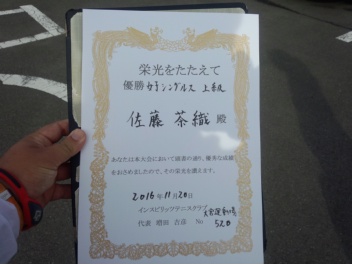 栄光をたたえて
優勝 女子シングルス 上級
佐藤 茶織 殿
あなたは本大会において頭書の通り、優秀な成績
をおさめましたので、その栄光を讃えます。
2016年11月20日
インスピリッツテニスクラブ
代表 増田 吉彦 No 520